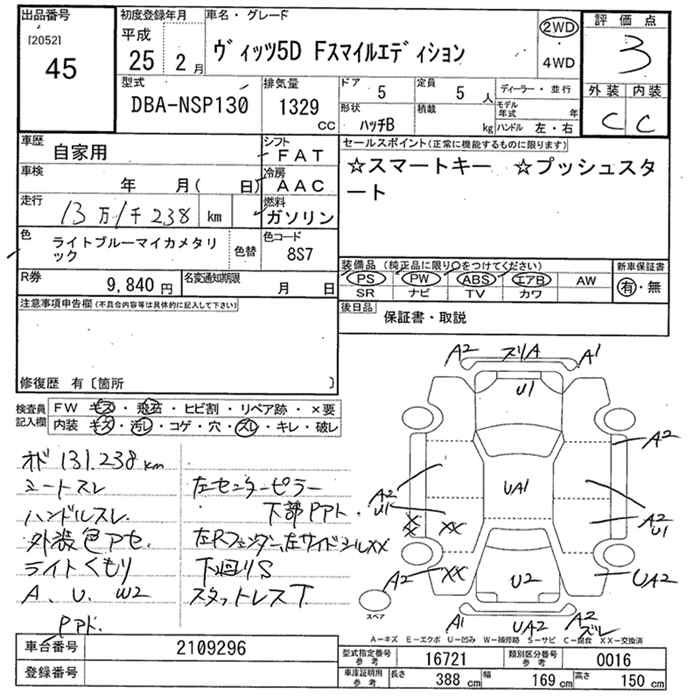 出品番号
[2052]
45
初度登録年月
平成
25年2月
車名・グレード
ヴィッツ5D Fスマイルエディション
2WD
4WD
評価点
3
型式
DBA-NSP130
排気量
1329
CC
ドア
5
定員
5人
ディーラー・並行
形状
ハッチB
積載
kg
モデル年式
年
ハンドル 左・右
外装 内装
C C
車歴
自家用
シフト
FAT
車検
年 月( 日)
冷房
AAC
走行
13万1千238 km
燃料
ガソリン
色
ライトブルーマイカメタリック
色替
色コード
8S7
R券
9,840円
名変通知期限
月 日
セールスポイント(正常に機能するものに限ります)
☆スマートキー ☆プッシュスタート
装備品(純正品に限り○をつけてください)
PS PW ABS エアB AW
SR ナビ TV カワ
新車保証書
有・無
後日品
保証書・取説
注意事項申告欄(不具合内容等は具体的に記入して下さい)
修復歴 有〔箇所 〕
検査員記入欄
FW キズ・飛石・ヒビ割・リペア跡・×要
内装 キズ・汚レ・コゲ・穴・スレ・キレ・破レ
オド 131.238km
シートスレ
ハンドルスレ
外装色アセ
ライトくもり
A、U、W2
PPat.
左センターピラー
下部PPat.
左Rフェンダー、左サイドシルXX
下廻りS
スタットレスT
A2 スリA A1
U1
A2
UA1
A2
U1
XX
XX
A2
U1
A2
XX
U2
UA2
スペア
A1 UA2 A2
ズレ
A-キズ E-エクボ U-凹み W-補修跡 S-サビ C-腐食 XX-交換済
車台番号
2109296
登録番号
型式指定番号
参考
16721
類別区分番号
参考
0016
車庫証明用
参考
長さ
388 cm
幅
169 cm
高さ
150 cm